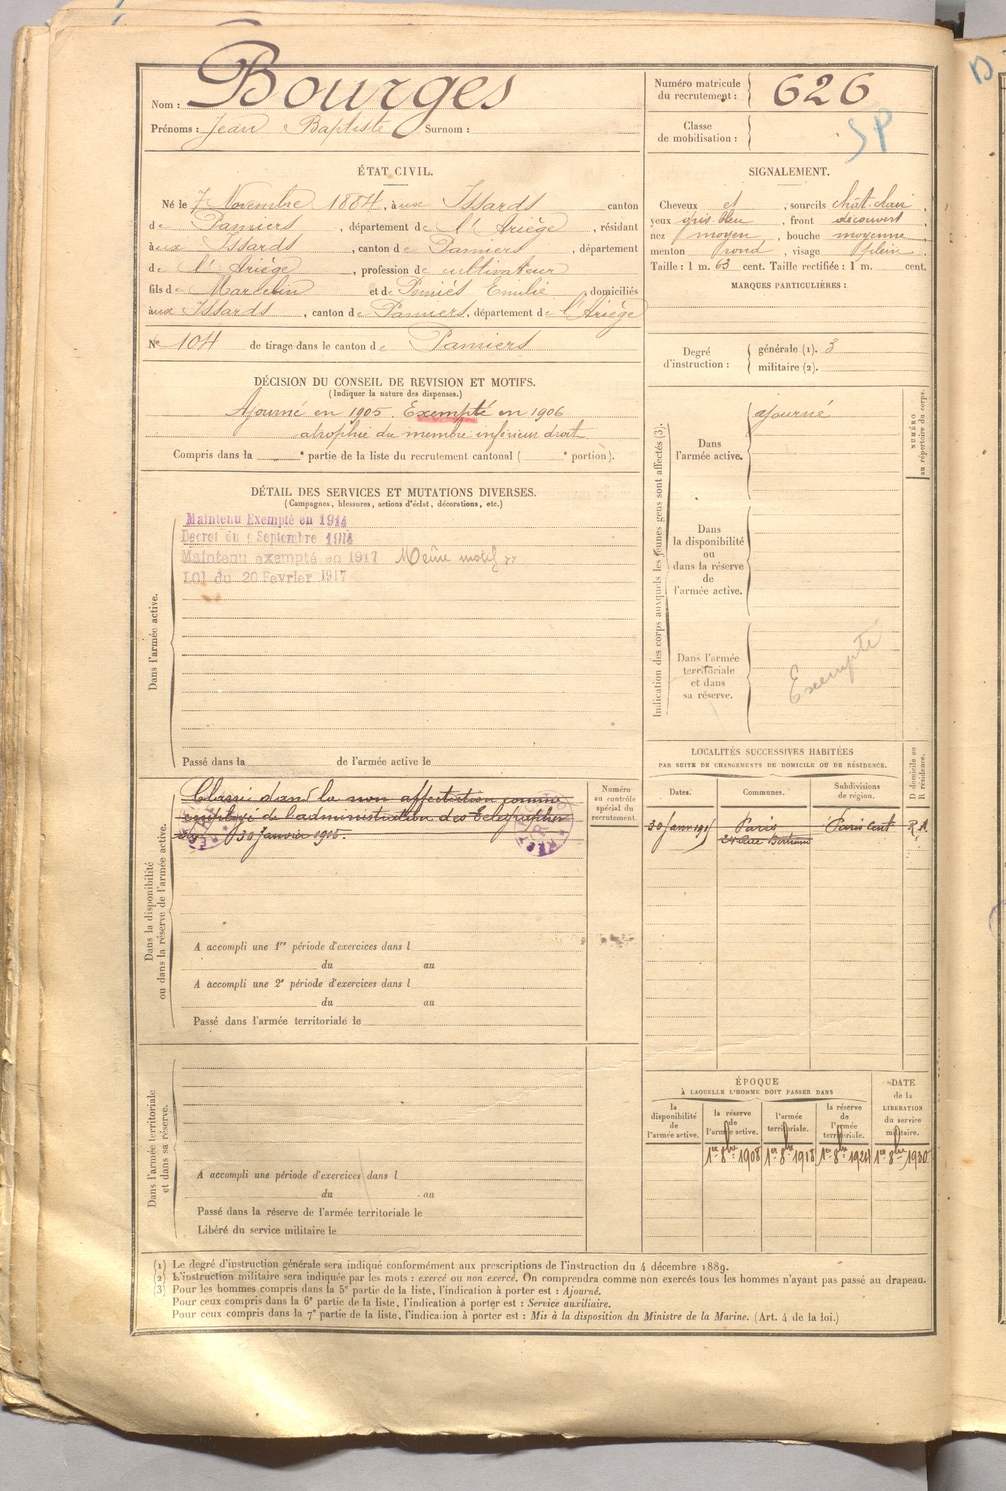 Nom : Bourges
Prénoms : Jean Baptiste Surnom :
Numéro matricule du recrutement : 626
Classe de mobilisation :
SP
ÉTAT CIVIL.
Né le 7 Novembre 1884, à aux Issards canton
de Pamiers, département de l'Ariège, résidant
à aux Issards, canton de Pamiers, département
de l'Ariège, profession de cultivateur
fils de Marcelin et de Pemiés Emilie domiciliés
à aux Issards, canton de Pamiers, département de l'Ariège
N° 104 de tirage dans le canton de Pamiers
SIGNALEMENT.
Cheveux et, sourcils chât. clair
yeux gris bleu, front découvert
nez moyen, bouche moyenne
menton rond, visage plein.
Taille : 1 m. 63 cent. Taille rectifiée : 1 m. cent.
MARQUES PARTICULIÈRES :
Degré d'instruction : générale (1). 3
militaire (2).
DÉCISION DU CONSEIL DE REVISION ET MOTIFS.
(Indiquer la nature des dispenses.)
Ajourné en 1905. Exempté en 1906
atrophie du membre inférieur droit
Compris dans la e partie de la liste du recrutement cantonal ( e portion).
DÉTAIL DES SERVICES ET MUTATIONS DIVERSES.
(Campagnes, blessures, actions d'éclat, décorations, etc.)
Dans l'armée active.
Maintenu Exempté en 1914
Decret du 9 Septembre 1914
Maintenu exempté en 1917 Même motif
LOI du 20 Fevrier 1917
Passé dans la de l'armée active le
Indication des corps auxquels les jeunes gens sont affectés (3).
NUMÉRO au répertoire du corps.
Dans l'armée active.
ajourné
Dans la disponibilité ou dans la réserve de l'armée active.
Dans l'armée territoriale et dans sa réserve.
Exempté
Dans la disponibilité ou dans la réserve de l'armée active.
Classé dans la non affectation comme
employé de l'administration des Télégraphes
30 Janvier 1906.
Numéro au contrôle spécial du recrutement.
A accompli une 1re période d'exercices dans l
du au
A accompli une 2e période d'exercices dans l
du au
Passé dans l'armée territoriale le
LOCALITÉS SUCCESSIVES HABITÉES
PAR SUITE DE CHANGEMENTS DE DOMICILE OU DE RÉSIDENCE.
Dates. Communes. Subdivisions de région. D domicile ou R résidence.
30 Janv Paris Paris Cent R
Rue Bertrand
Dans l'armée territoriale et dans sa réserve.
A accompli une période d'exercices dans l
du au
Passé dans la réserve de l'armée territoriale le
Libéré du service militaire le
ÉPOQUE
À LAQUELLE L'HOMME DOIT PASSER DANS
la disponibilité de l'armée active. la réserve de l'armée active. l'armée territoriale. la réserve de l'armée territoriale. DATE de la LIBÉRATION du service militaire.
1er 8bre 1908 1er 8bre 1918 1er 8bre 1924 1er 8bre 1930
(1) Le degré d'instruction générale sera indiqué conformément aux prescriptions de l'instruction du 4 décembre 1889.
(2) L'instruction militaire sera indiquée par les mots : exercé ou non exercé. On comprendra comme non exercés tous les hommes n'ayant pas passé au drapeau.
(3) Pour les hommes compris dans la 5e partie de la liste, l'indication à porter est : Ajourné.
Pour ceux compris dans la 6e partie de la liste, l'indication à porter est : Service auxiliaire.
Pour ceux compris dans la 7e partie de la liste, l'indication à porter est : Mis à la disposition du Ministre de la Marine. (Art. 4 de la loi.)